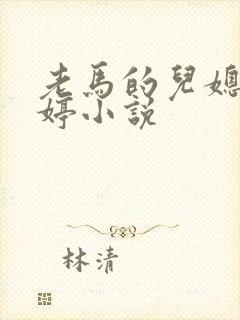 老馬的兒媳
婷小說
林清